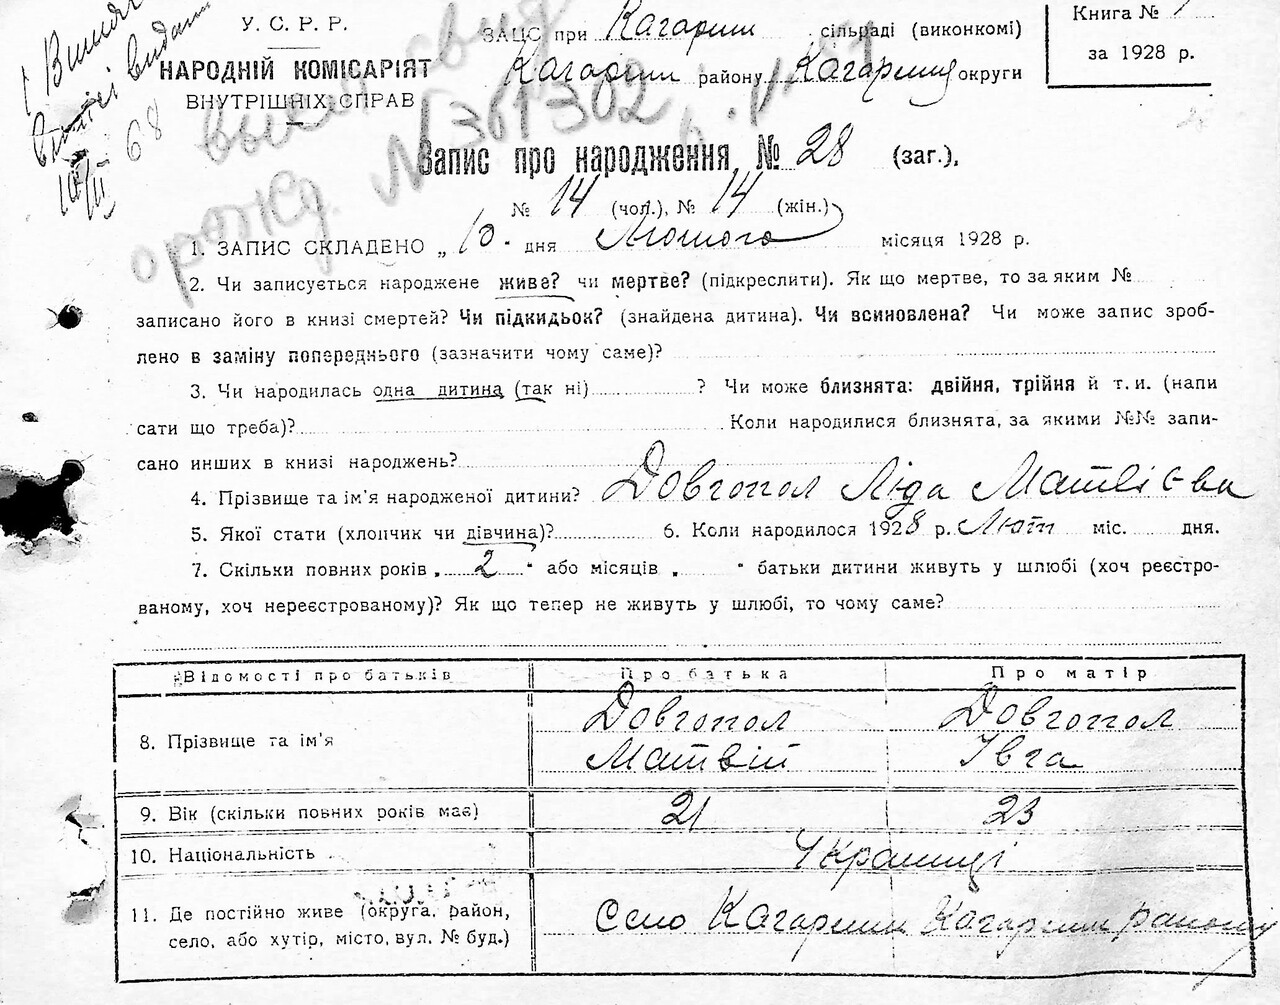 У.С.Р.Р.
НАРОДНІЙ КОМІСАРІЯТ
ВНУТРІШНІХ СПРАВ
ЗАЦС при Кагарлик сільраді (виконкомі)
Кагарлик району округи
Книга №
за 1928 р.
68
№ 361302
орожд.
Запис про народження № 28 (заг.),
№ 14 (чол.), № 14 (жін.)
1. ЗАПИС СКЛАДЕНО „10" дня Лютого місяця 1928 р.
2. Чи записується народжене живе? чи мертве? (підкреслити). Як що мертве, то за яким №
записано його в книзі смертей? Чи підкидьок? (знайдена дитина). Чи всиновлена? Чи може запис зроб-
лено в заміну попереднього (зазначити чому саме)?
3. Чи народилась одна дитина (так ні) ? Чи може близнята: двійня, трійня й т. и. (напи
сати що треба)? Коли народилися близнята, за якими №№ запи-
сано инших в книзі народжень?
4. Прізвище та ім'я народженої дитини? Довгопол Ліда Матвієва
5. Якої стати (хлопчик чи дівчина)? 6. Коли народилося 1928 р. Лют міс. дня.
7. Скільки повних років „2" або місяців „ " батьки дитини живуть у шлюбі (хоч реєстро-
ваному, хоч нереєстрованому)? Як що тепер не живуть у шлюбі, то чому саме?
Відомості про батьків Про батька Про матір
8. Прізвище та ім'я Довгопол Матвій Довгопол Івга
9. Вік (скільки повних років має) 21 23
10. Національність Українці
11. Де постійно живе (округа, район,
село, або хутір, місто, вул. № буд.) Село Кагарлик Кагарлик району